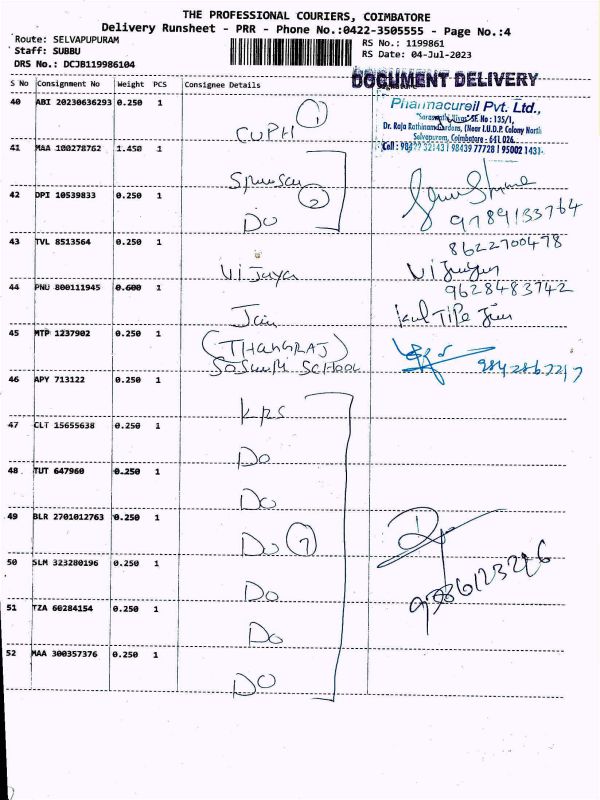 THE PROFESSIONAL COURIERS, COIMBATORE
Delivery Runsheet - PRR - Phone No.:0422-3505555 - Page No.:4
Route: SELVAPUPURAM
RS No.: 1199861
Staff: SUBBU
RS Date: 04-Jul-2023
DRS No.: DCJB119986104
DOCUMENT DELIVERY
S No Consignment No Weight PCS Consignee Details
Pharmacureil Pvt. Ltd.,
40 ABI 20230636293 0.250 1
CUPH 1
SF. No : 135/1,
Dr. Raja Rathinam Gardens, (Near I.U.D.P. Colony North
Selvapuram, Coimbatore - 641 026.
Cell : 90422 32143 | 98439 77728 | 95002 1431
41 MAA 100278762 1.450 1
42 DPI 10539833 0.250 1
2
Do
9789133764
43 TVL 8513564 0.250 1
8622700478
Vijaya
44 PNU 800111945 0.600 1
9628483742
Jain
45 MTP 1237902 0.250 1
(THANGRAJ)
SCHOOL
46 APY 713122 0.250 1
KPS
47 CLT 15655638 0.250 1
Do
48 TUT 647960 0.250 1
Do
49 BLR 2701012763 0.250 1
Do 7
50 SLM 323280196 0.250 1
Do
51 TZA 60284154 0.250 1
Do
52 MAA 300357376 0.250 1
Do